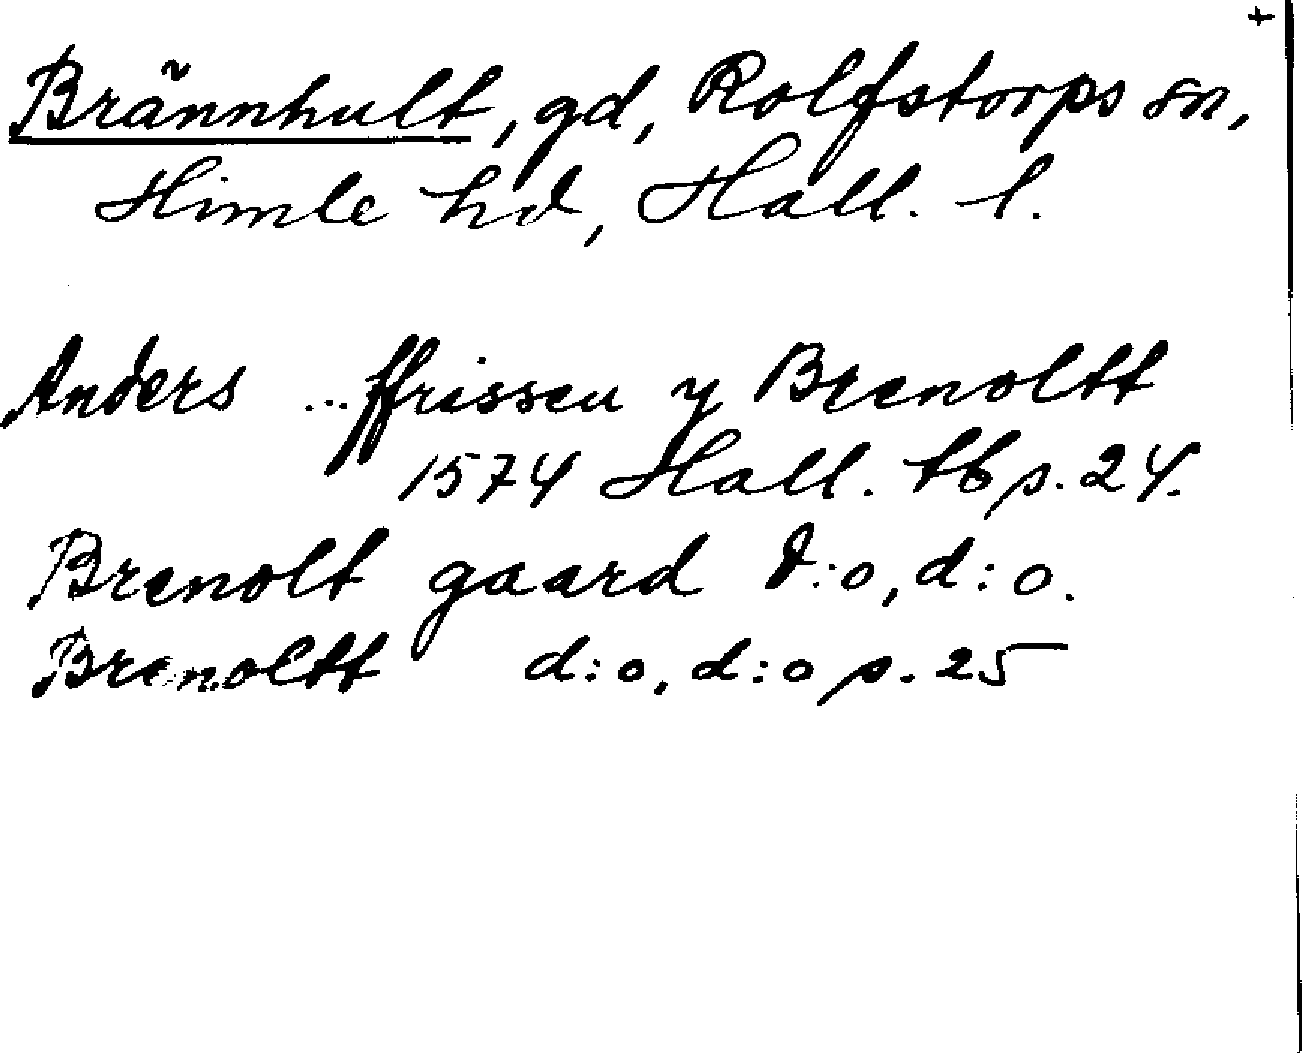 +
Brännhult, gd, Rolfstorps sn,
Himle hd, Hall. l.
Anders ... ffrissen y Brenoltt
1574 Hall. tb s. 24.
Brenolt gaard d:o, d:o.
Brenoltt d:o, d:o s. 25